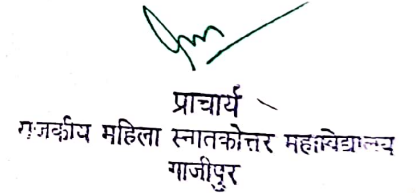 प्राचार्य
राजकीय महिला स्नातकोत्तर महाविद्यालय
गाजीपुर